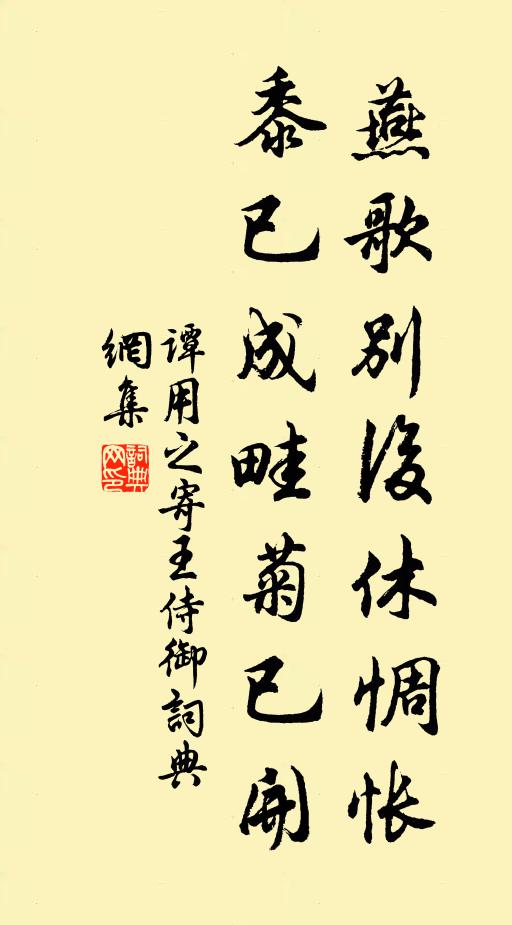 燕歌別後休惆帐
黍已成畦菊已開
谭用之寄王侍御詞典
網集
詞典网印